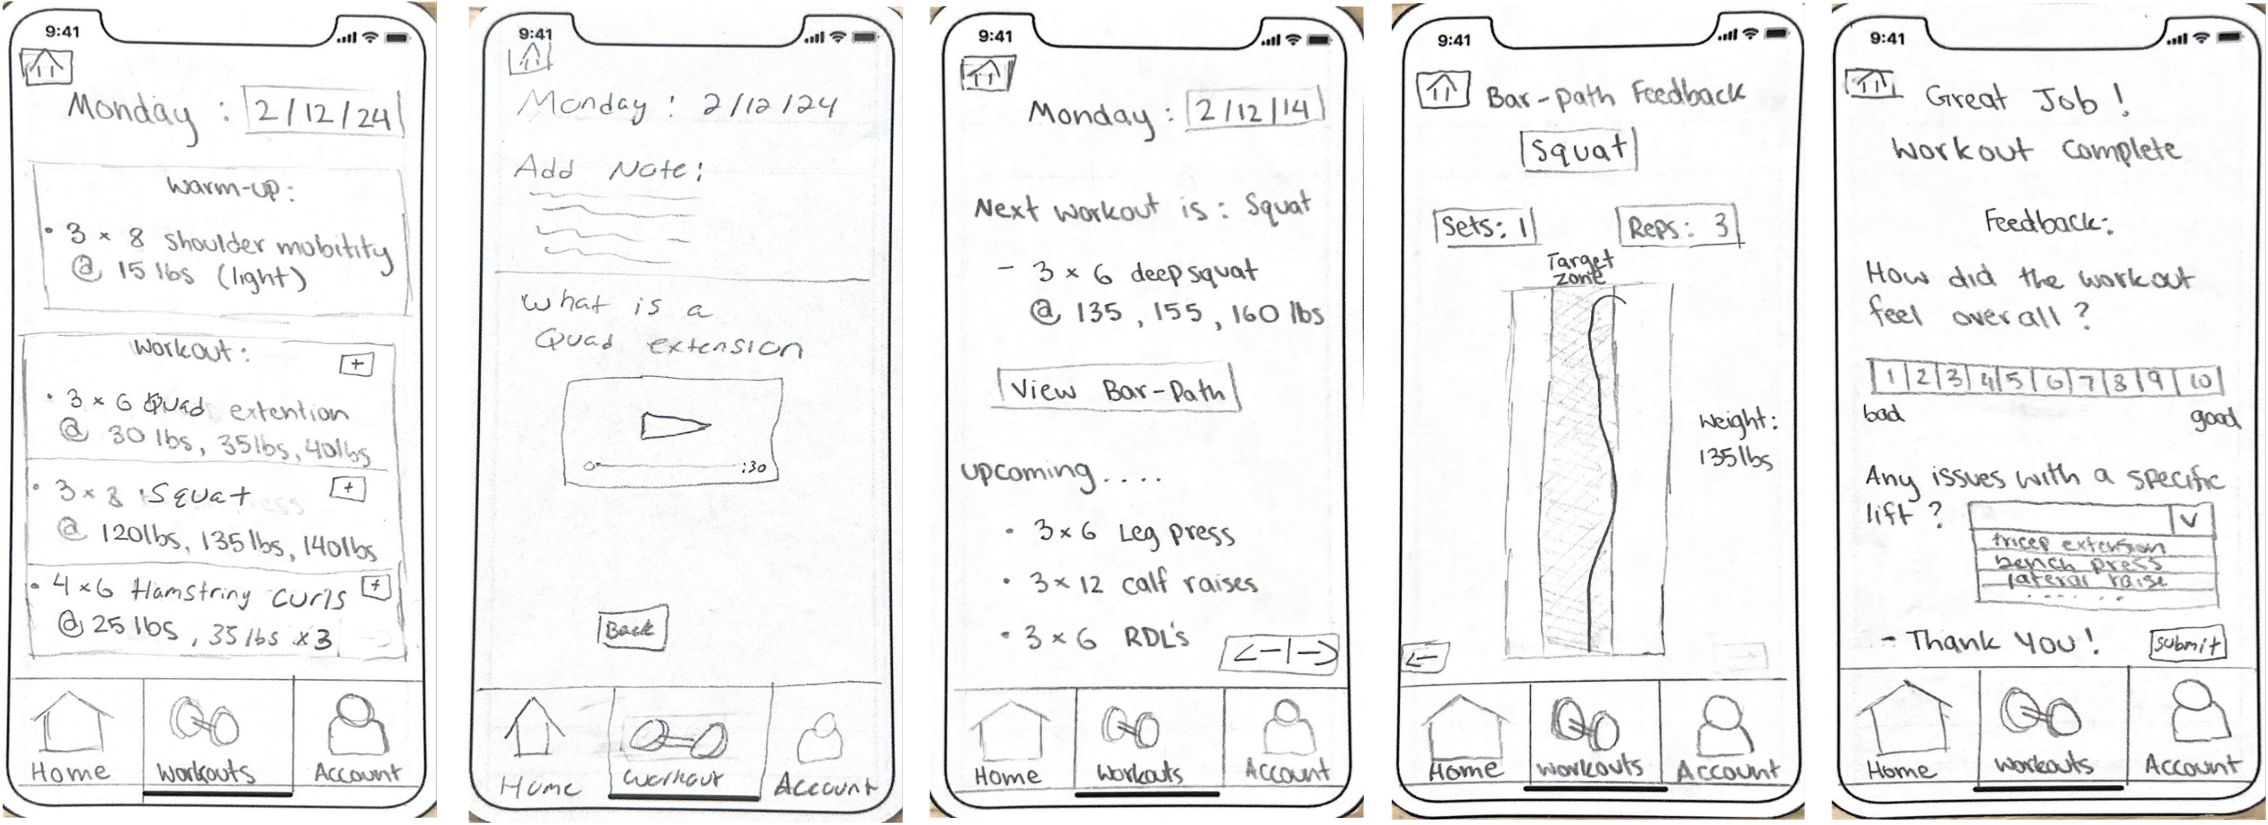 9:41
Monday : 2/12/24
Warm-up:
• 3 × 8 Shoulder mobitity
@ 15 lbs (light)
Workout: +
• 3 × 6 Quad extention
@ 30 lbs, 35lbs, 40lbs
• 3 × 8 Squat +
@ 120lbs, 135lbs, 140lbs
• 4 ×6 Hamstring curls +
@ 25 lbs, 35 lbs ×3
Home Workouts Account
9:41
Monday : 2/12/24
Add Note:
What is a
Quad extension
:30
Back
Home Workout Account
9:41
Monday : 2/12/14
Next workout is : Squat
- 3 × 6 deep squat
@ 135, 155, 160 lbs
View Bar-Path
upcoming....
• 3×6 Leg press
• 3×12 calf raises
• 3×6 RDL's
Home Workouts Account
9:41
Bar-path Feedback
Squat
Sets: 1 Reps: 3
Target
Zone
Weight:
135lbs
Home Workouts Account
9:41
Great Job!
Workout complete
Feedback:
How did the workout
feel overall?
1 2 3 4 5 6 7 8 9 10
bad good
Any issues with a specific
lift?
tricep extension
bench press
lateral raise
......
- Thank You! Submit
Home Workouts Account